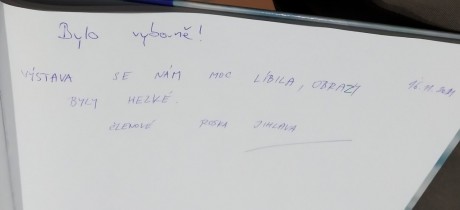 Bylo výborné!
VÝSTAVA SE NÁM MOC LÍBILA, OBRAZY
BYLY HEZKÉ.
ČLENOVÉ ROSKA JIHLAVA